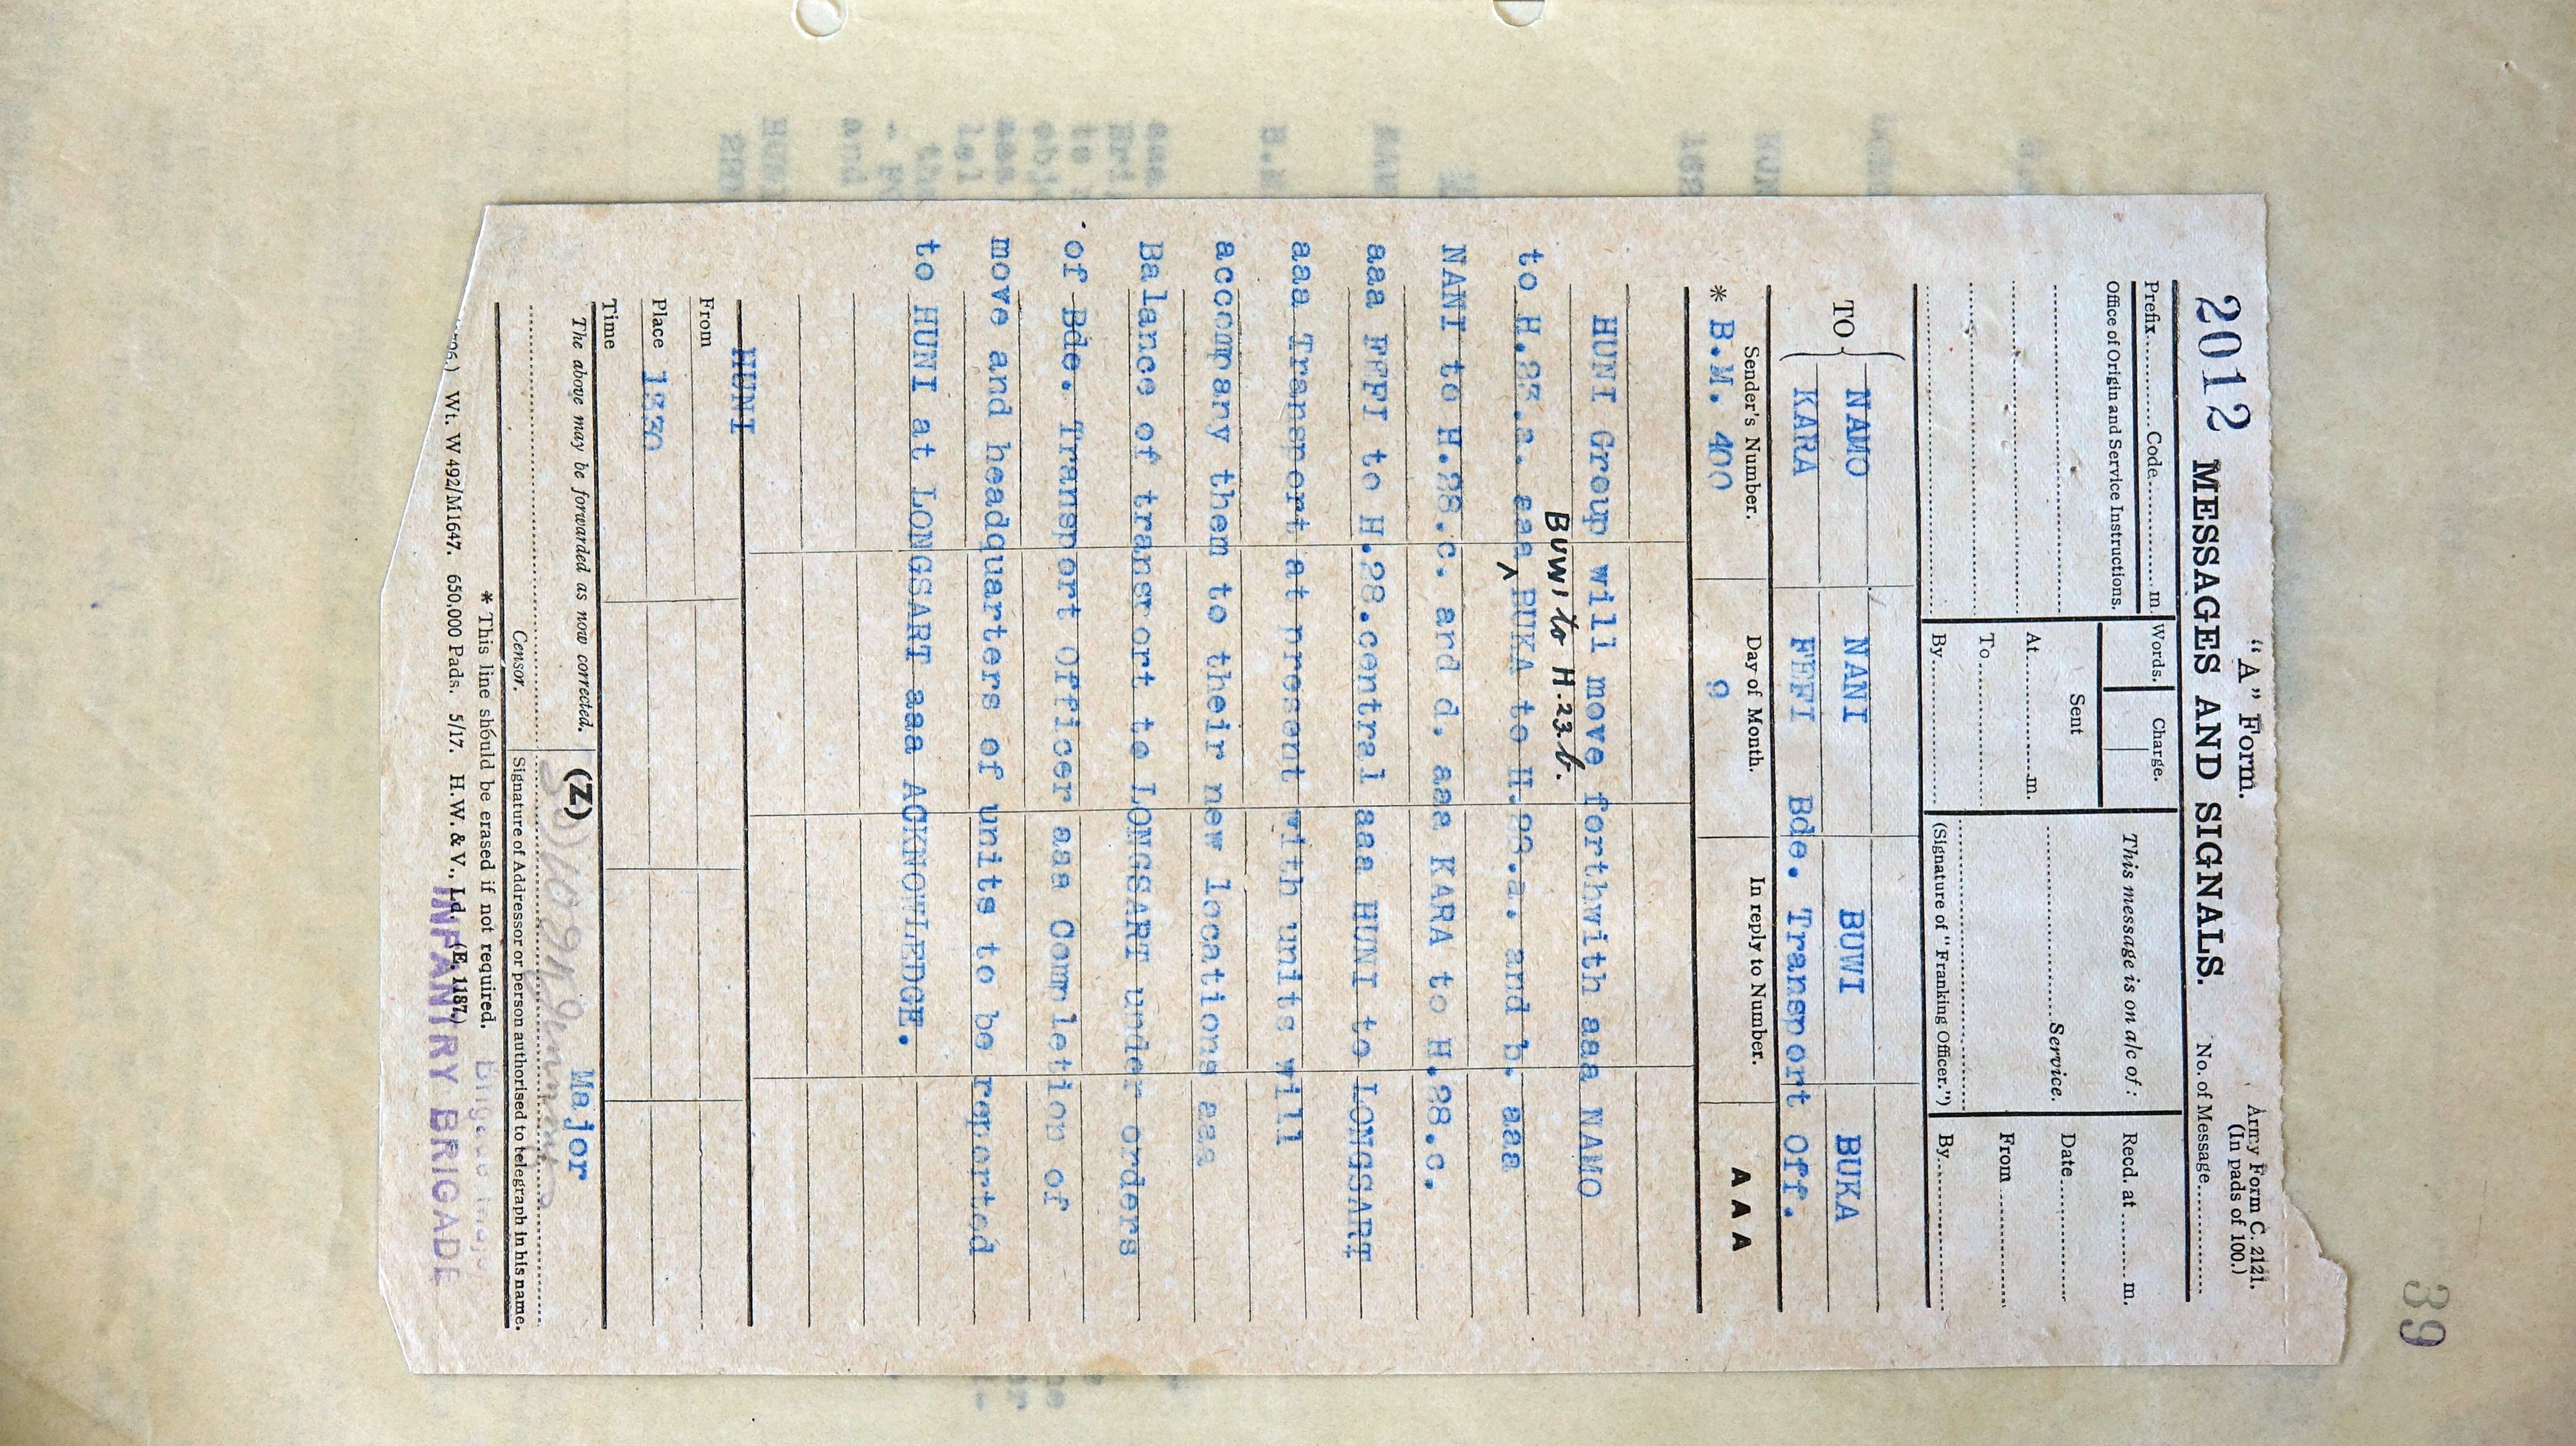 39
"A" Form.
Army Form C. 2121.
(In pads of 100.)
2012 MESSAGES AND SIGNALS.
No. of Message
Prefix Code m.
Words. Charge.
This message is on a/c of :
Recd. at m.
Office of Origin and Service Instructions.
Sent
Service.
Date
At m.
To
From
By
(Signature of "Franking Officer.")
By
TO
NAMO NANI BUWI BUKA
KARA FEFI Bde. Transport Off.
Sender's Number. Day of Month. In reply to Number.
A A A
* B.M. 400 9
HUNI Group will move forthwith aaa NAMO
BUWI to H.23b.
to H.23.a. aaa BUKA to H.23.a. and b. aaa
NANI to H.28.c. and d. aaa KARA to H.28.c.
aaa FEFI to H.28.central aaa HUNI to LONGSART
aaa Transport at present with units will
accompany them to their new locations aaa
Balance of transport to LONGSART under orders
of Bde. Transport Officer aaa Completion of
move and headquarters of units to be reported
to HUNI at LONGSART aaa ACKNOWLEDGE.
HUNI
From
Place 1330
Time
The above may be forwarded as now corrected. (Z)
Major
Censor. Signature of Addressor or person authorised to telegraph in his name.
* This line should be erased if not required.
Wt. W 492/M1647. 650,000 Pads. 5/17. H.W. & V., Ld. (E. 1187.)
INFANTRY BRIGADE